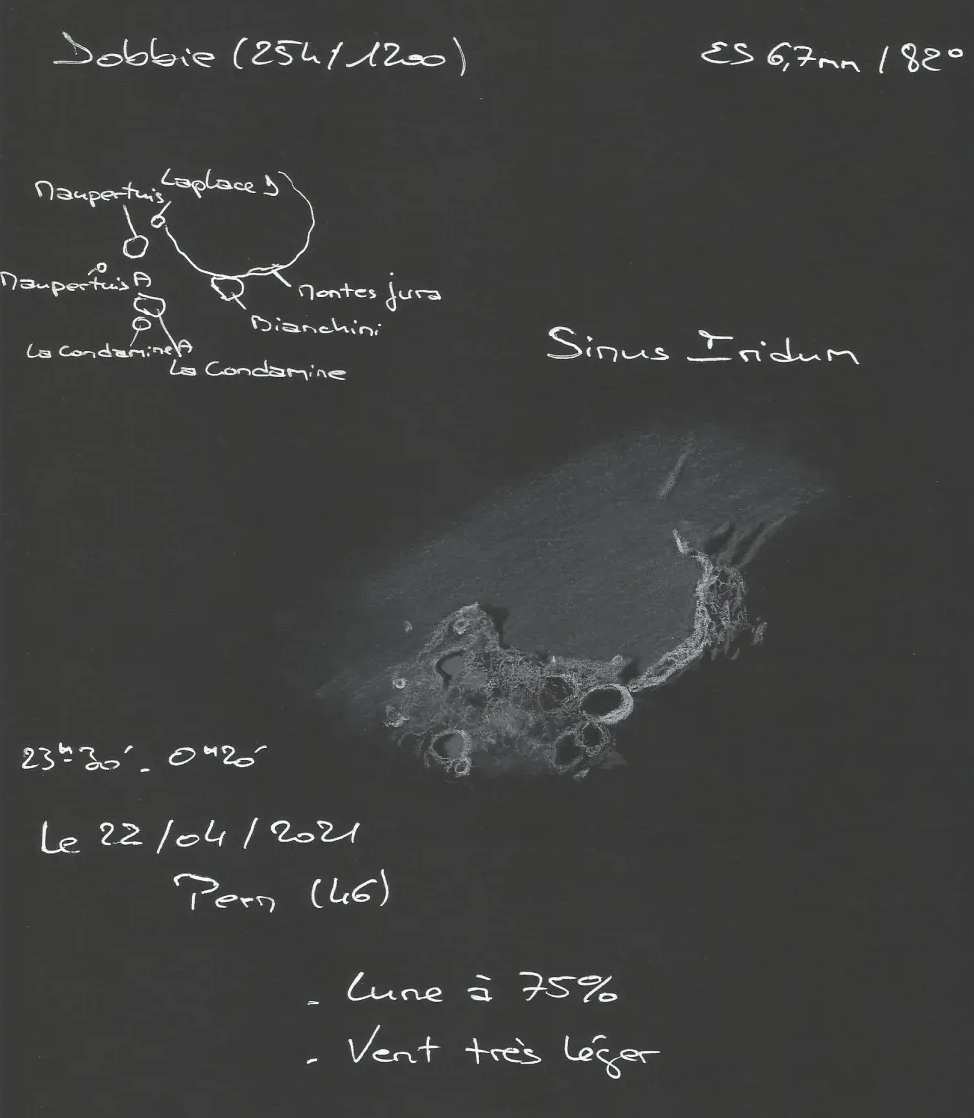 Dobbie (254/1200)
ES 6,7mm / 82°
Maupertuis
Laplace D
Maupertuis A
Montes jura
Bianchini
La Condamine A
La Condamine
Sinus Iridum
23h30' - 0h20'
Le 22/04/2021
Pern (46)
- Lune à 75%
- Vent très léger